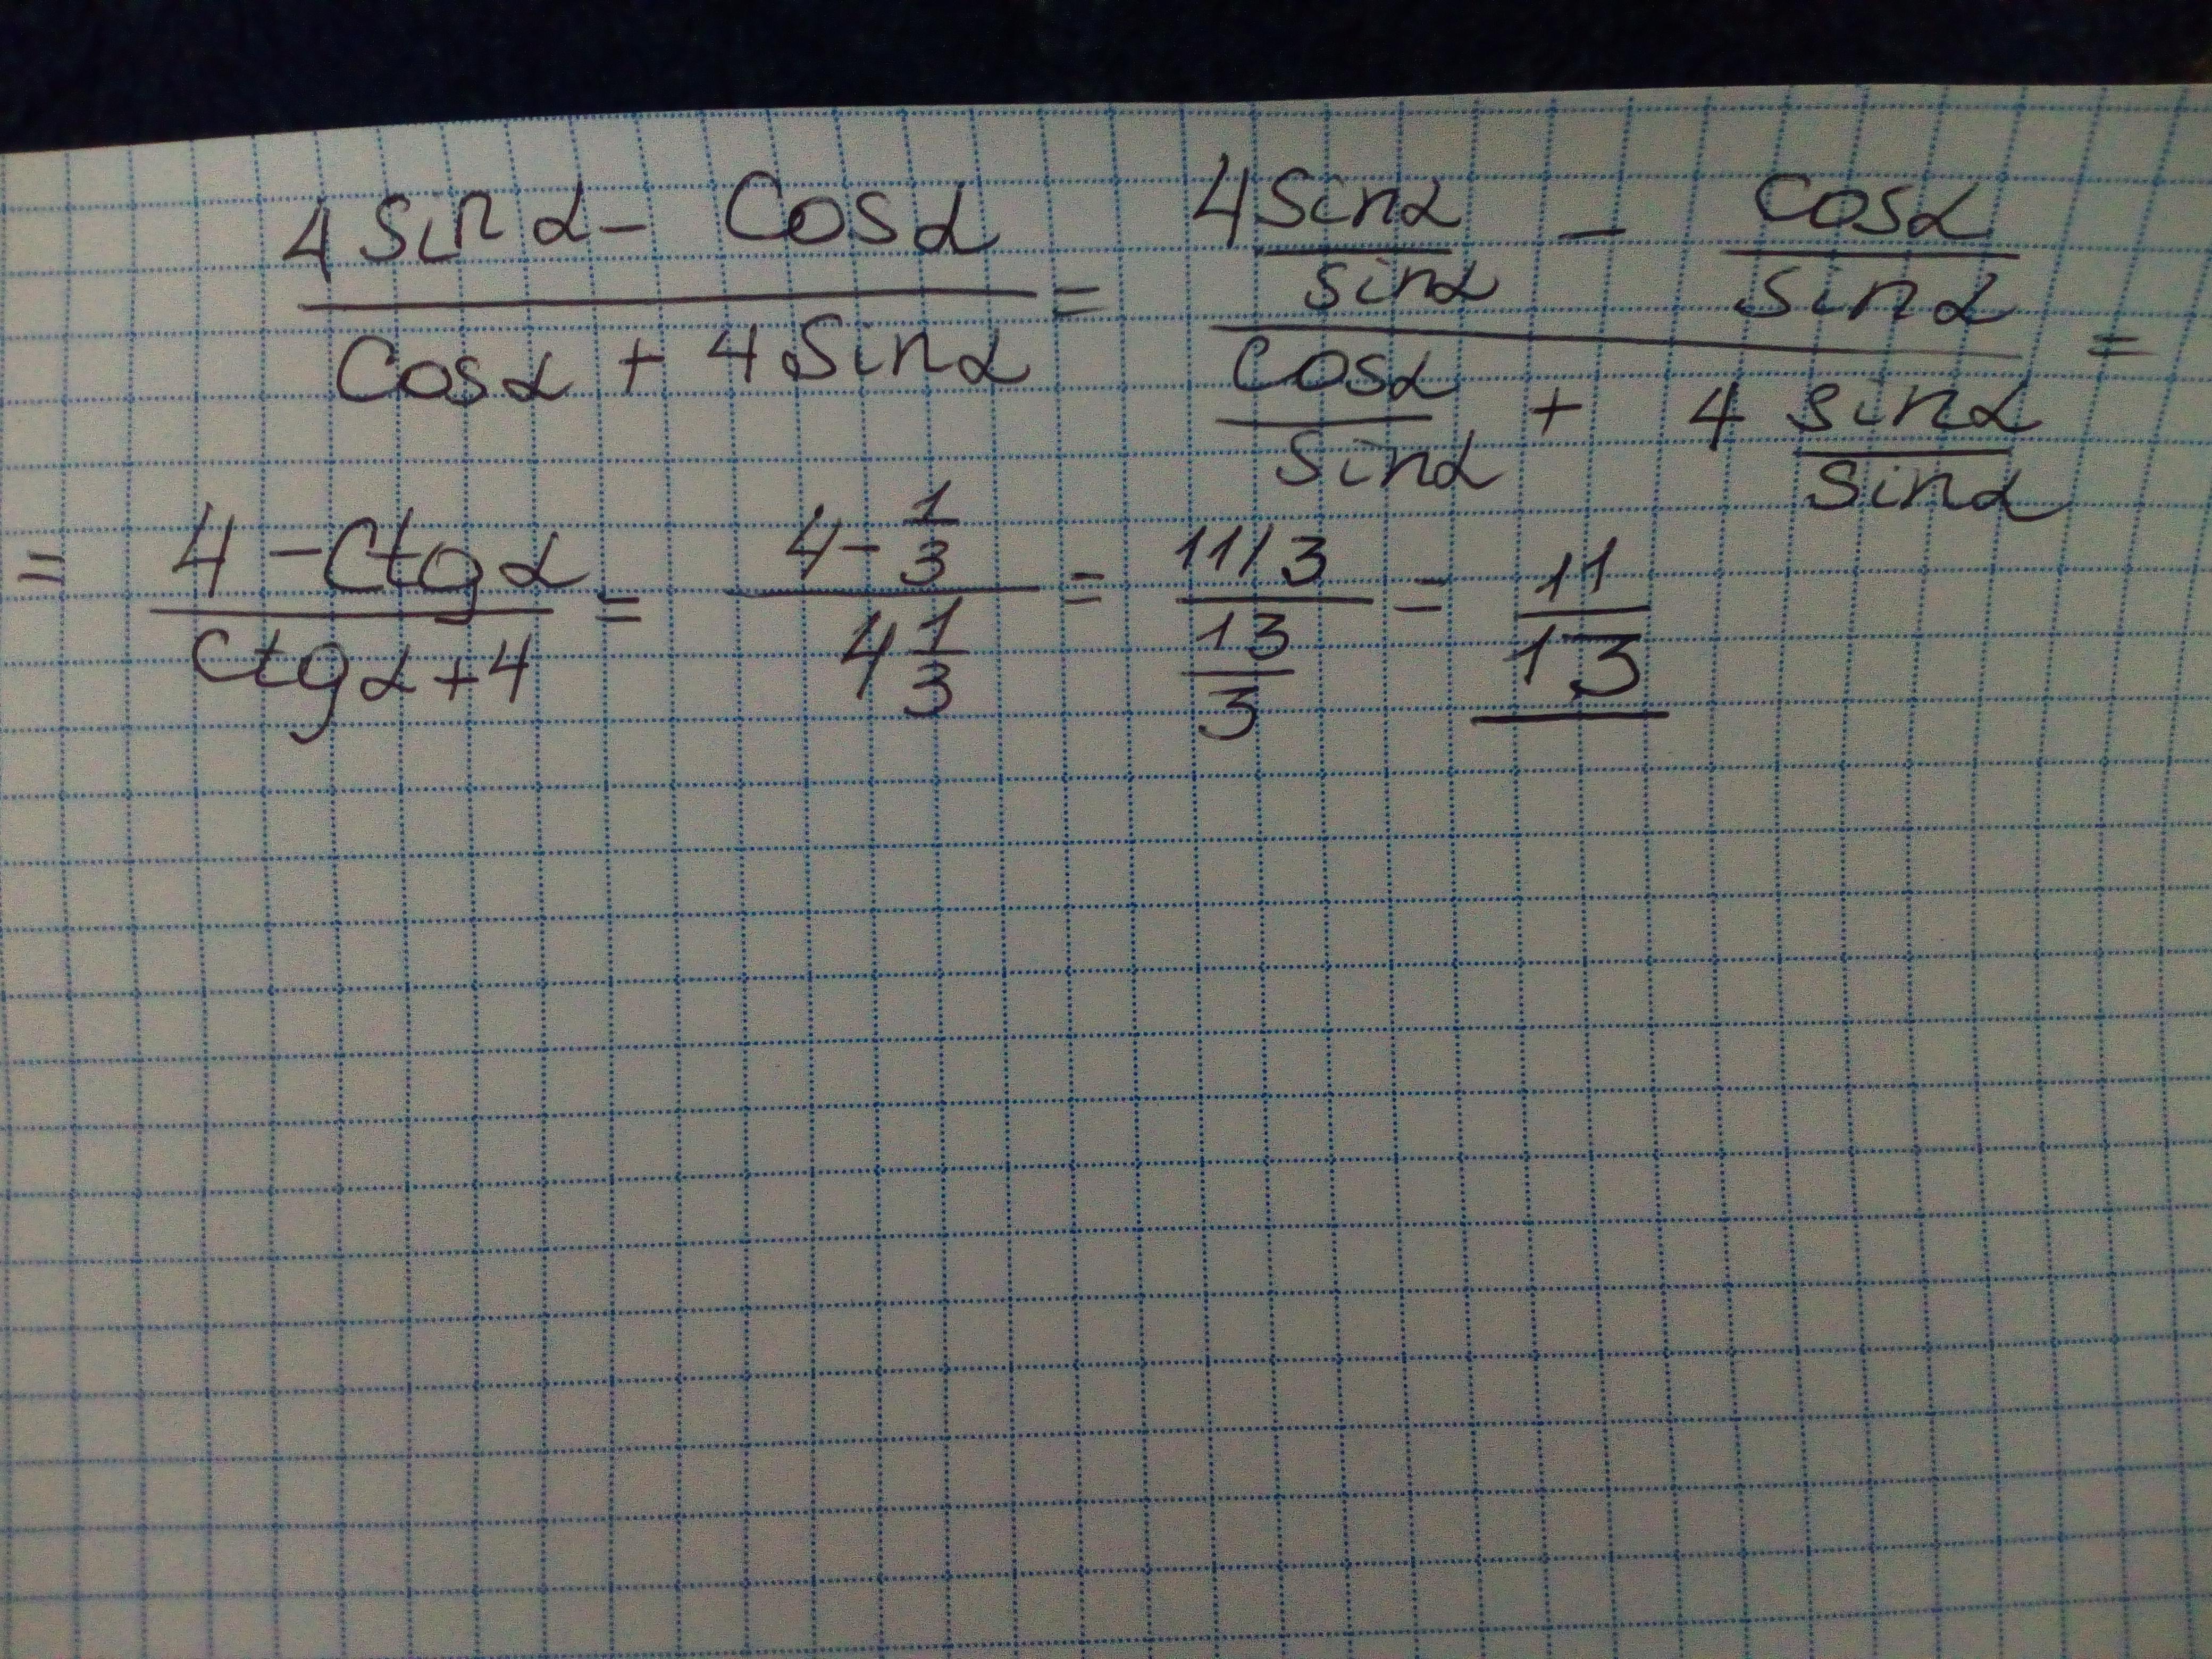 (4 sin α - cos α)/(cos α + 4 sin α) = (4 sin α/sin α - cos α/sin α)/(cos α/sin α + 4 sin α/sin α) =
= (4 - ctg α)/(ctg α + 4) = (4 - 1/3)/(4 1/3) = (11/3)/(13/3) = 11/13